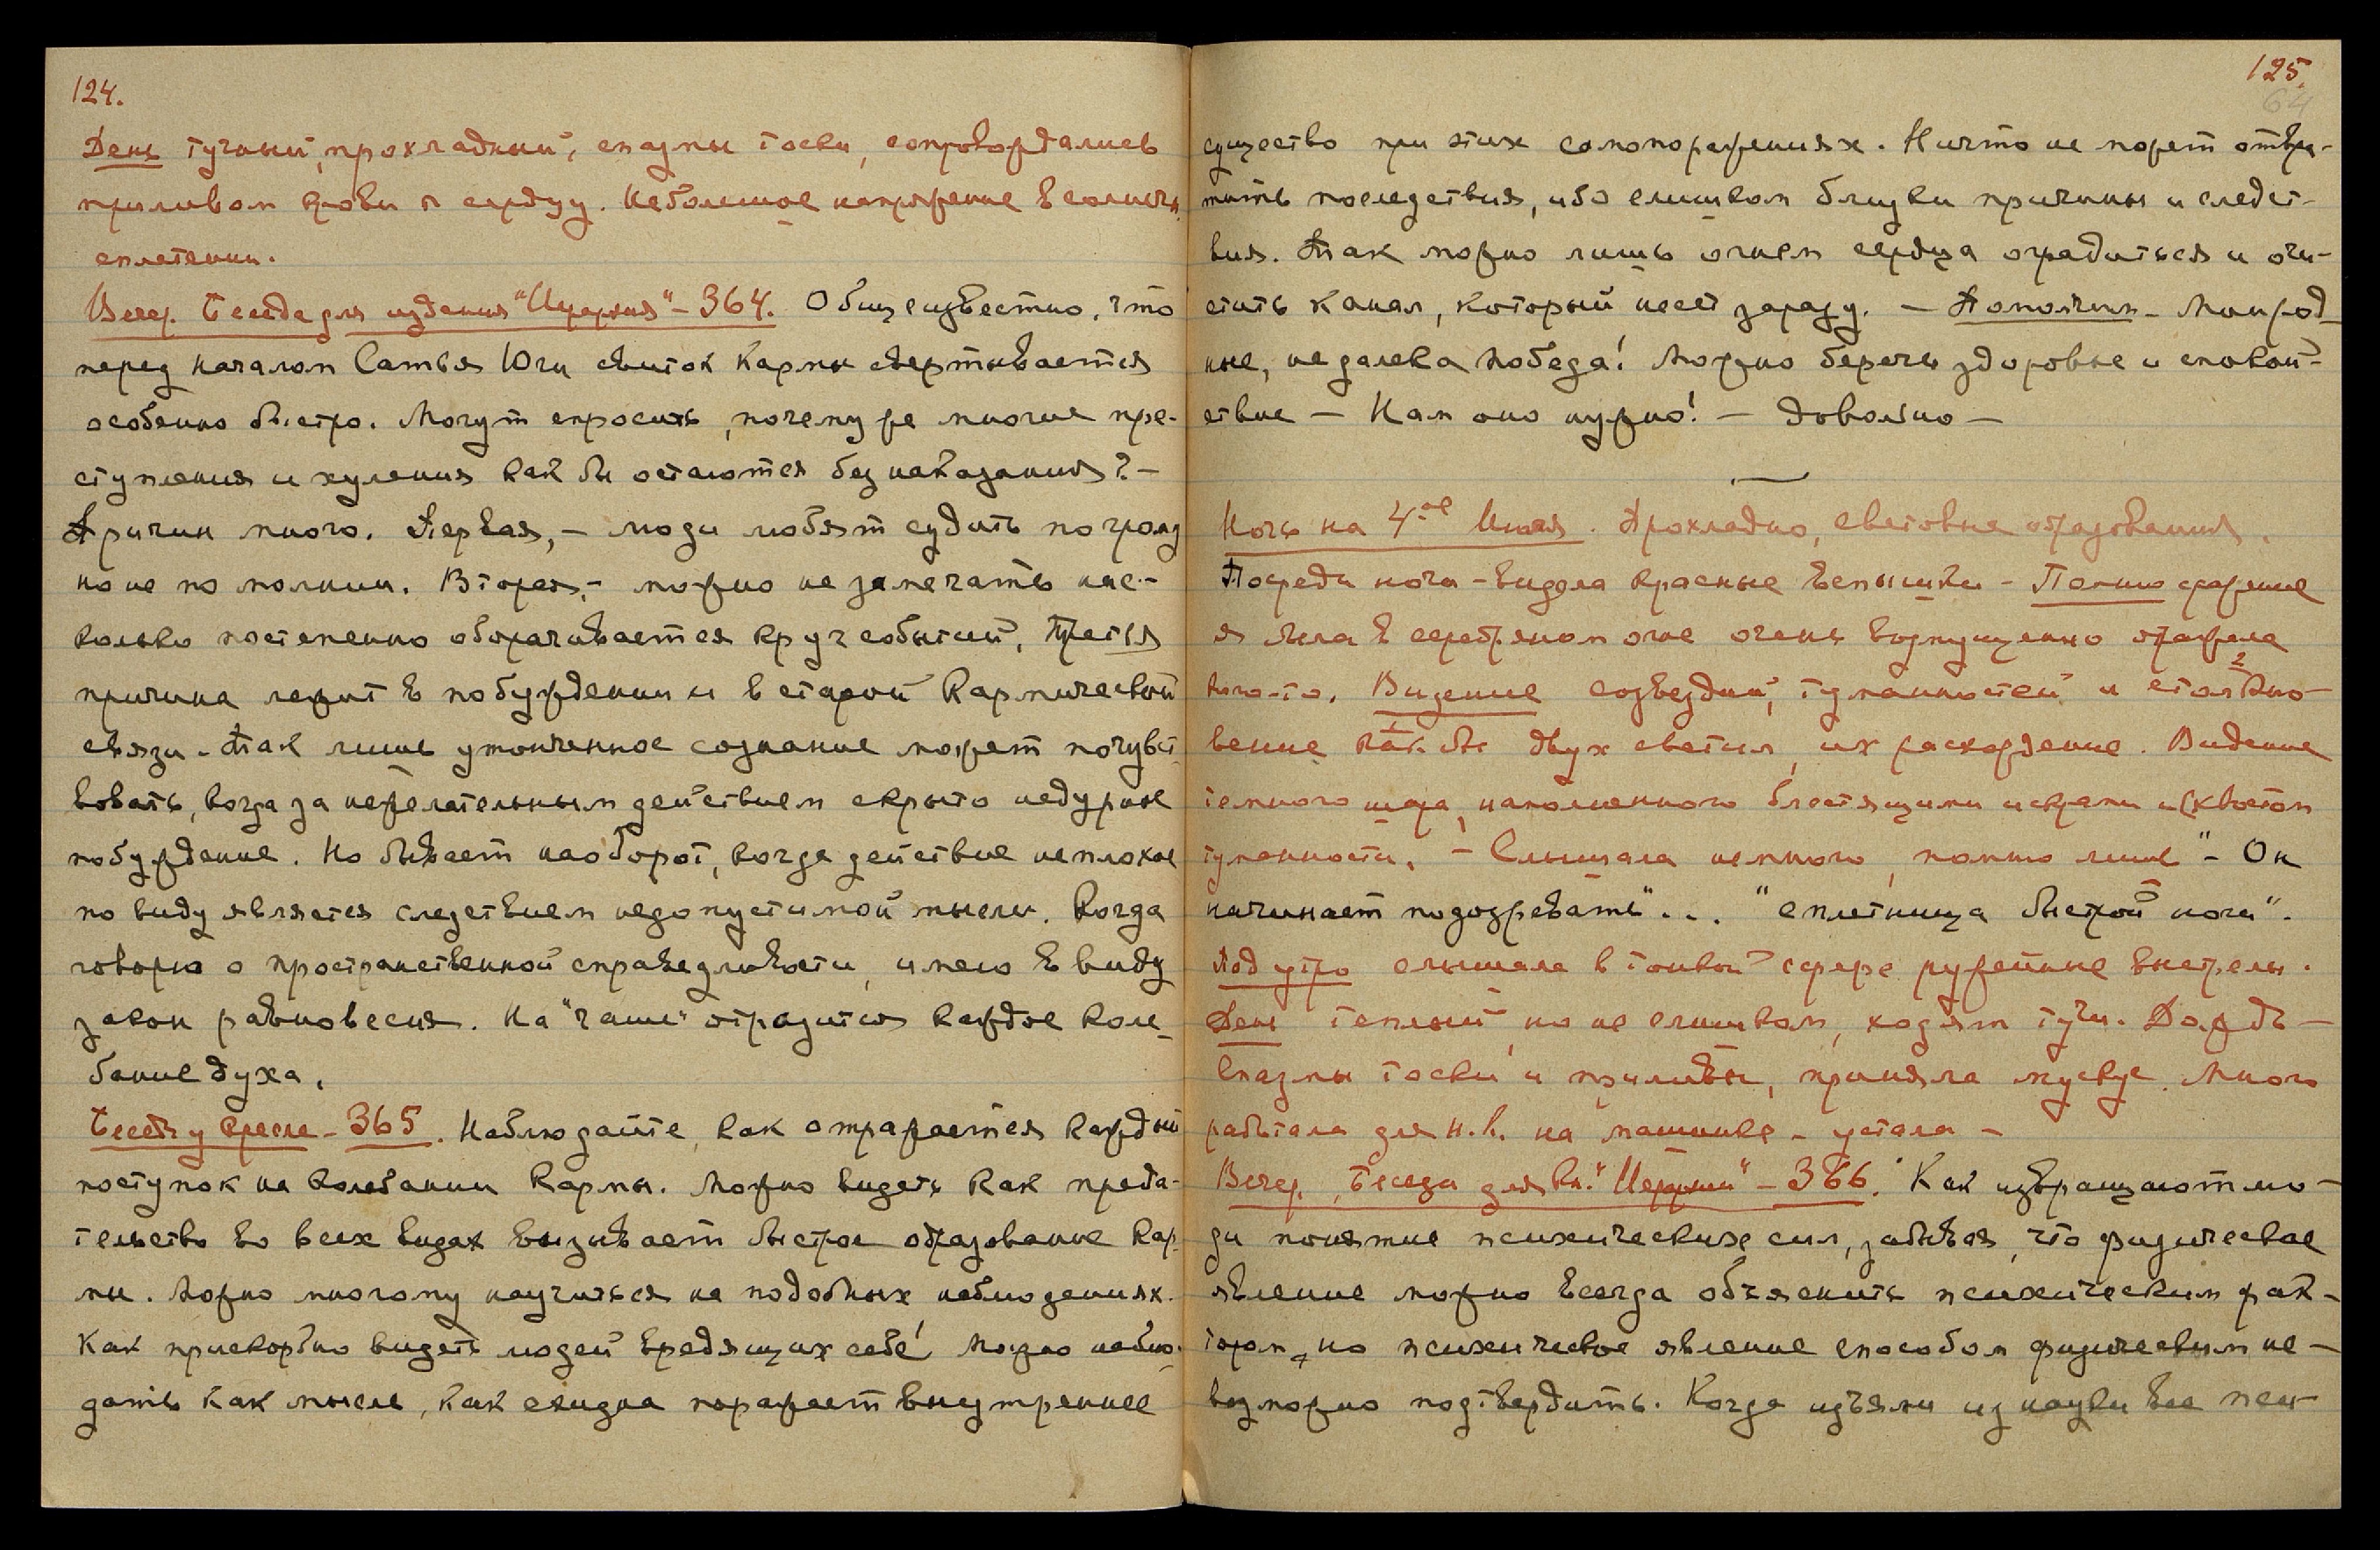 124.
День тучный, прохладный, спазмы тоски, сопровождались
приливом крови к сердцу. Небольшое напряжение в солнечн.
сплетении.
Вечер. Беседа для издания "Иерархия" – 364. Общеизвестно, что
перед началом Сатья Юги свиток Кармы свертывается
особенно быстро. Могут спросить, почему же многие пре-
ступления и хуления как бы остаются без наказания? –
Причин много. Первая, – люди любят судить по грому
но не по молнии. Вторая, – можно не замечать нас-
колько постепенно оборачивается круг событий. Третья
причина лежит в побуждении и в старой кармической
связи. Так лишь утонченное сознание может почувст-
вовать, когда за нежелательным действием скрыто недурное
побуждение. Но бывает наоборот, когда действие неплохое
по виду является следствием недопустимой мысли. Когда
говорю о пространственной справедливости, имею в виду
закон равновесия. На "чаше" отразится каждое коле-
бание духа.
Беседа у кресла – 365. Наблюдайте, как отражается каждый
поступок на колебании Кармы. Можно видеть как преда-
тельство во всех видах вызывает быстрое образование Кар-
мы. Можно многому научиться на подобных наблюдениях.
Как прискорбно видеть людей вредящих себе! Можно наблю-
дать как мысль, как ехидна поражает внутреннее
125.
64
существо при этих самопоражениях. Ничто не может отвра-
тить последствия, ибо слишком близки причины и следст-
вия. Так можно лишь огнем сердца оградиться и очи-
стить канал, который несет заразу. – Помолчим – Мои род-
ные, недалека победа! Можно беречь здоровье и спокой-
ствие – Нам оно нужно! – Довольно –
Ночь на 4-ое Июля. Прохладно, световые образования.
Посреди ночи – видела красные вспышки – Помню сражение
я была в серебряном огне очень возмущенно отражала
кого-то. Видение созвездий, туманностей и столкно-
вение как бы двух светил, их расхождение. Видение
темного шара, наполненного блестящими искрами и (хвостом
туманности. – Слышала немного, помню лишь "– Он
начинает подозревать"... "сплетница быстрой ночи".
Под утро слышала в тонкой сфере ружейные выстрелы.
День теплый, но не слишком, ходят тучи. Дождь –
Спазмы тоски и приливы, приняла мускус. Много
работала для Н.К. на машинке – устала –
Вечер, Беседа для кн. "Иерархии" – 366. Как извращают лю-
ди понятие психических сил, забывая, что физическое
явление можно всегда объяснить психическим фак-
тором, но психическое явление способом физическим не-
возможно подтвердить. Когда изъяли из науки все пси-